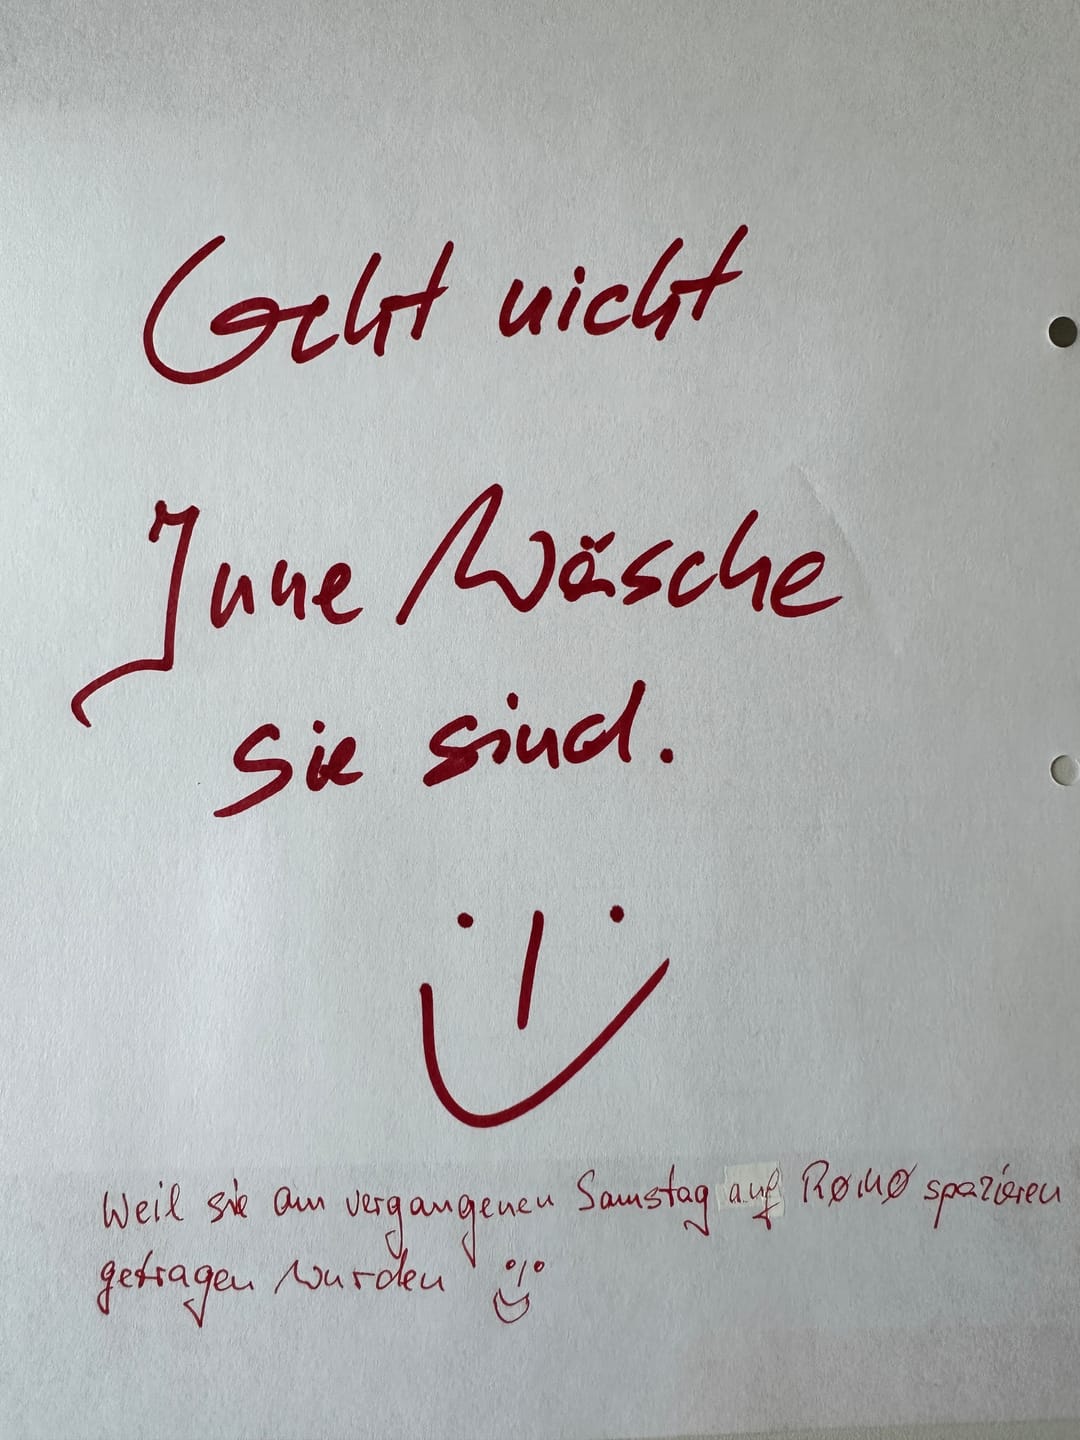 Geht nicht
Inne Wäsche
sie sind.
Weil sie am vergangenen Samstag auf RØMØ spazieren
getragen wurden